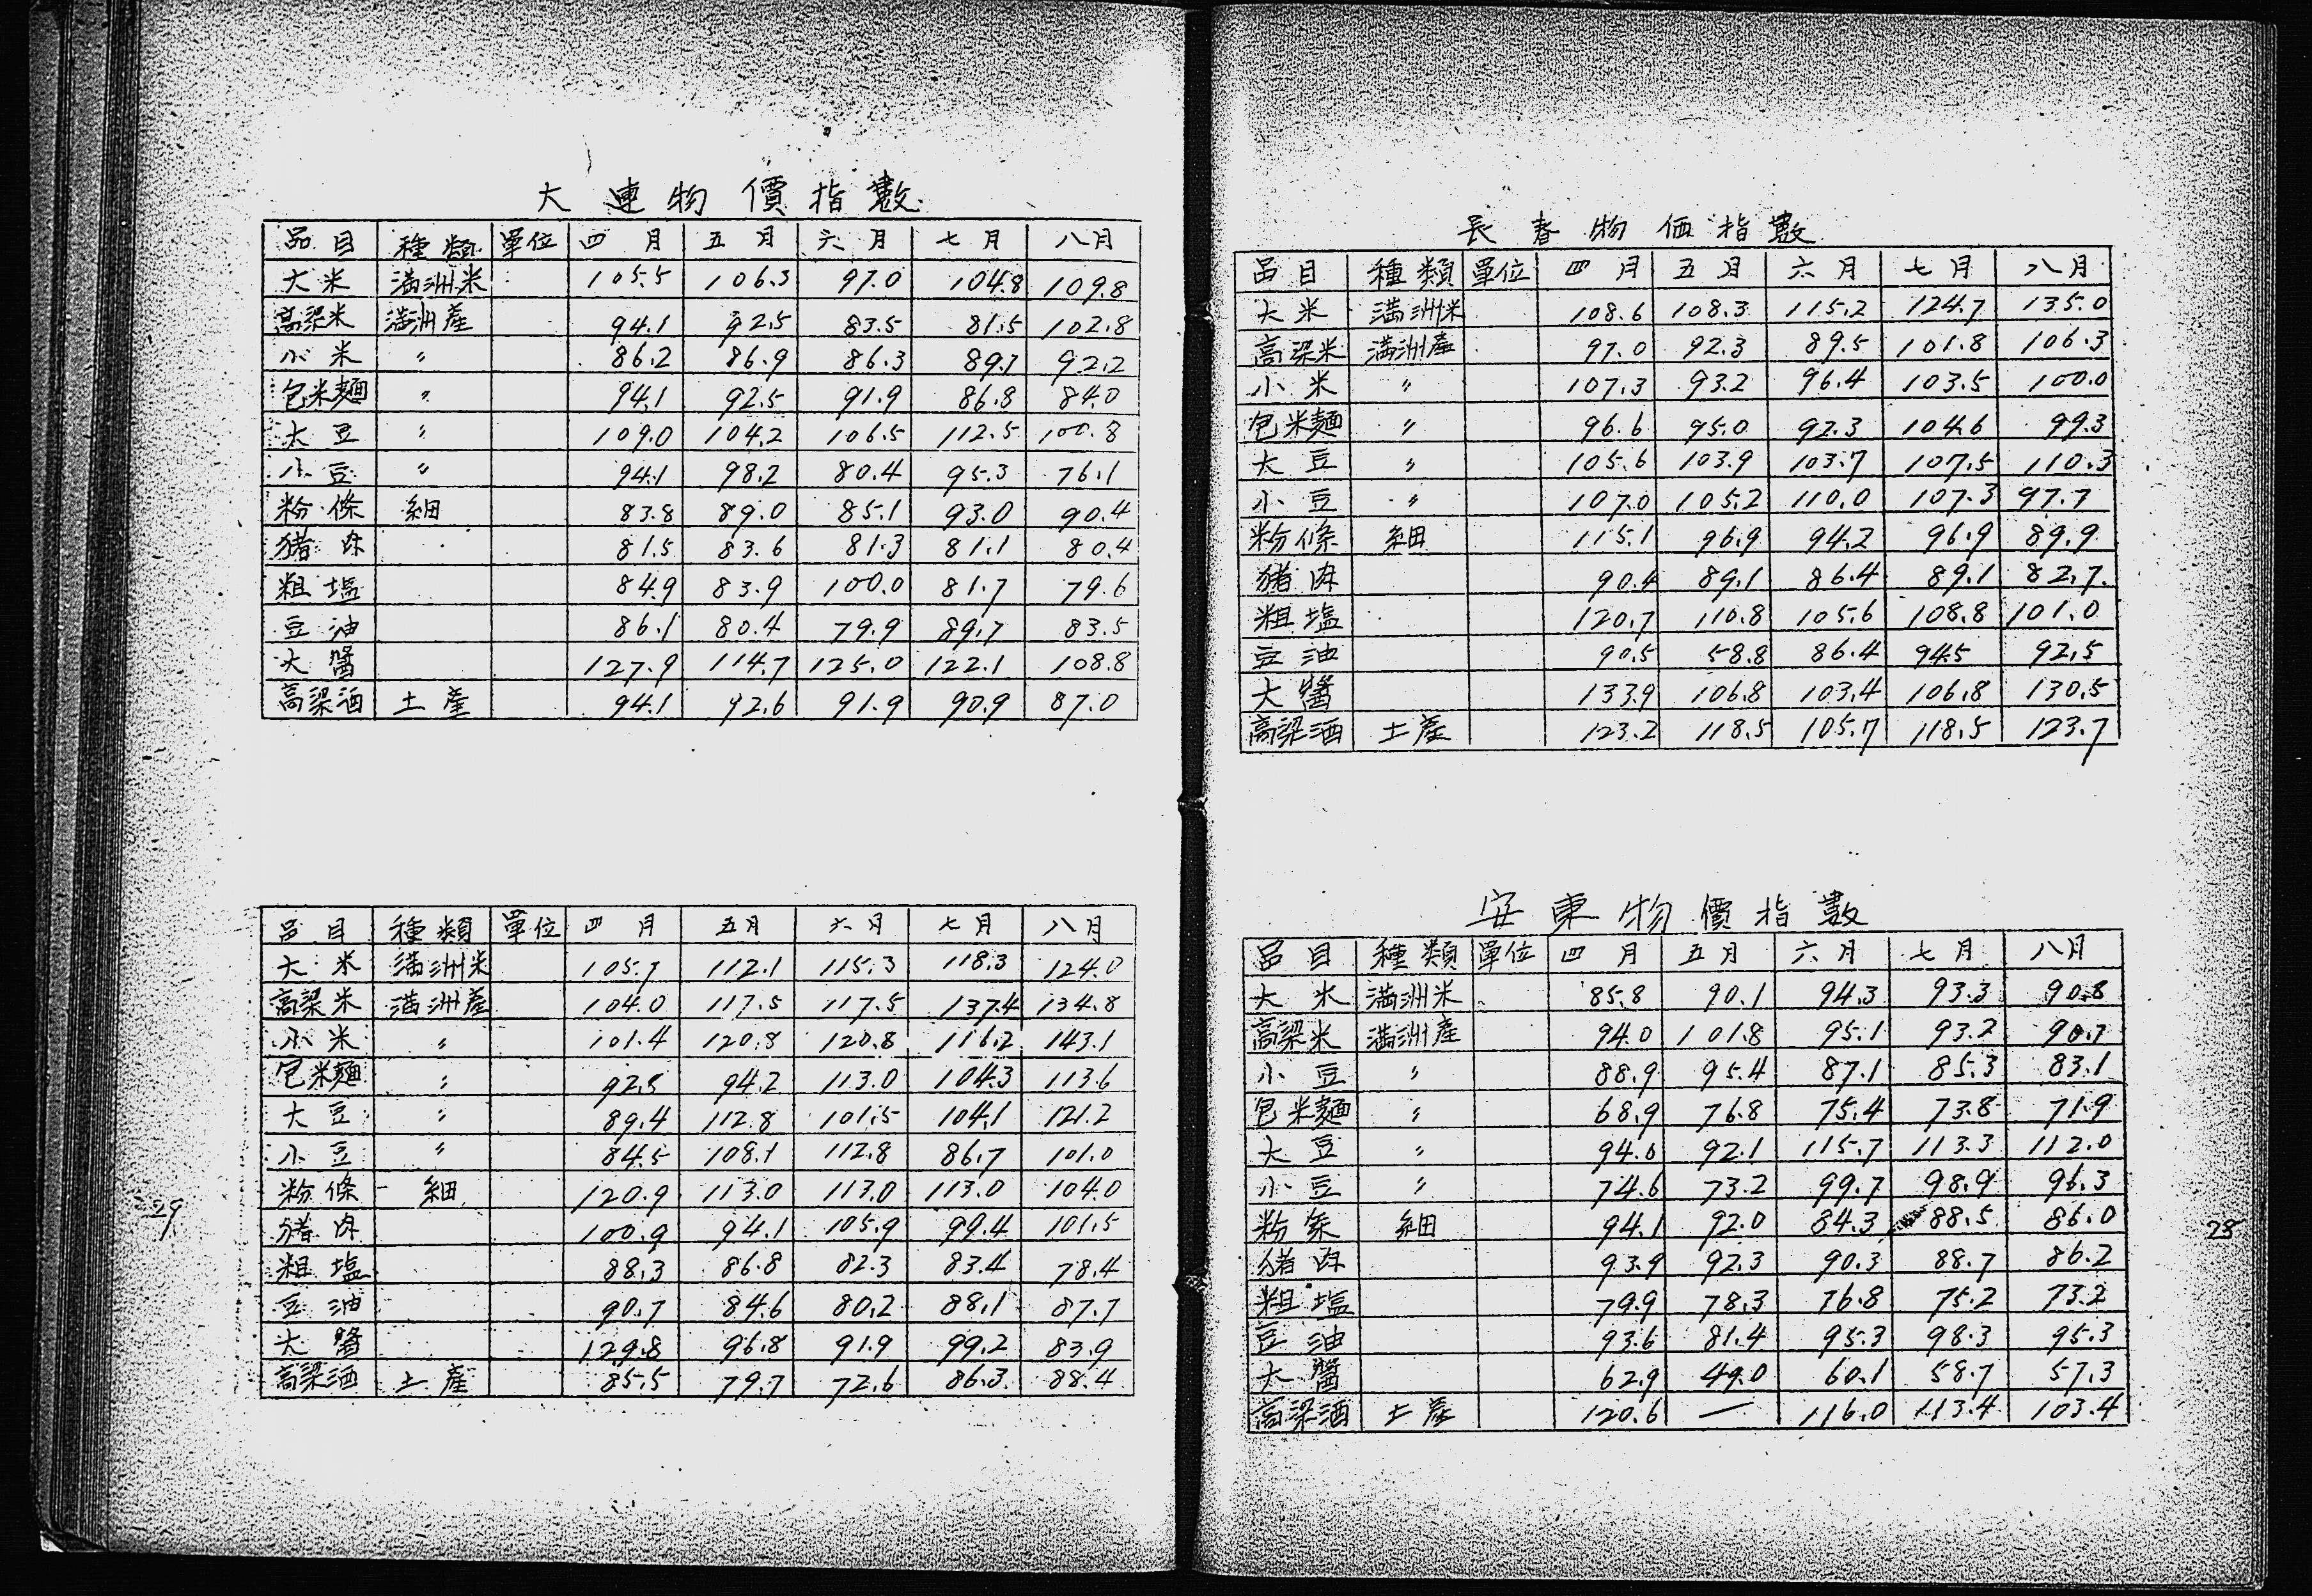 大連物價指數
品目 種類 單位 四月 五月 六月 七月 八月
大米 満洲米 105.5 106.3 97.0 104.8 109.8
高梁米 満洲産 94.1 92.5 83.5 81.5 102.8
小米 〃 86.2 86.9 86.3 89.1 92.2
包米麵 〃 94.1 92.5 91.9 86.8 84.0
大豆 〃 109.0 104.2 106.5 112.5 100.8
小豆 〃 94.1 98.2 80.4 95.3 76.1
粉條 細 83.8 89.0 85.1 93.0 90.4
猪肉 81.5 83.6 81.3 81.1 80.4
粗塩 84.9 83.9 100.0 81.7 79.6
豆油 86.1 80.4 79.9 89.7 83.5
大醤 127.9 114.7 125.0 122.1 108.8
高梁酒 土産 94.1 92.6 91.9 90.9 87.0
品目 種類 單位 四月 五月 六月 七月 八月
大米 満洲米 105.7 112.1 115.3 118.3 124.0
高梁米 満洲産 104.0 117.5 117.5 137.4 134.8
小米 〃 101.4 120.8 120.8 116.2 143.1
包米麵 〃 92.5 94.2 113.0 104.3 113.6
大豆 〃 89.4 112.8 101.5 104.1 121.2
小豆 〃 84.5 108.1 112.8 86.7 101.0
粉條 細 120.9 113.0 113.0 113.0 104.0
猪肉 100.9 94.1 105.9 99.4 101.5
粗塩 88.3 86.8 82.3 83.4 78.4
豆油 90.7 84.6 80.2 88.1 87.7
大醤 129.8 96.8 91.9 99.2 83.9
高梁酒 土産 85.5 79.7 72.6 86.3 88.4
29
長春物価指數
品目 種類 單位 四月 五月 六月 七月 八月
大米 満洲米 108.6 108.3 115.2 124.7 135.0
高梁米 満洲産 97.0 92.3 89.5 101.8 106.3
小米 〃 107.3 93.2 96.4 103.5 100.0
包米麵 〃 96.6 95.0 92.3 104.6 99.3
大豆 〃 105.6 103.9 103.7 107.5 110.3
小豆 〃 107.0 105.2 110.0 107.3 97.7
粉條 細 115.1 96.9 94.2 96.9 89.9
猪肉 90.4 89.1 86.4 89.1 82.7
粗塩 120.7 110.8 105.6 108.8 101.0
豆油 90.5 58.8 86.4 94.5 92.5
大醤 133.9 106.8 103.4 106.8 130.5
高梁酒 土産 123.2 118.5 105.7 118.5 123.7
安東物價指數
品目 種類 單位 四月 五月 六月 七月 八月
大米 満洲米 85.8 90.1 94.3 93.3 90.8
高梁米 満洲産 94.0 101.8 95.1 93.2 90.7
小豆 〃 88.9 95.4 87.1 85.3 83.1
包米麵 〃 68.9 76.8 75.4 73.8 71.9
大豆 〃 94.6 92.1 115.7 113.3 112.0
小豆 〃 74.6 73.2 99.7 98.9 96.3
粉条 細 94.1 92.0 84.3 88.5 86.0
猪肉 93.9 92.3 90.3 88.7 86.2
粗塩 79.9 78.3 76.8 75.2 73.2
豆油 93.6 81.4 95.3 98.3 95.3
大醤 62.9 49.0 60.1 58.7 57.3
高梁酒 土産 120.6 — 116.0 113.4 103.4
28